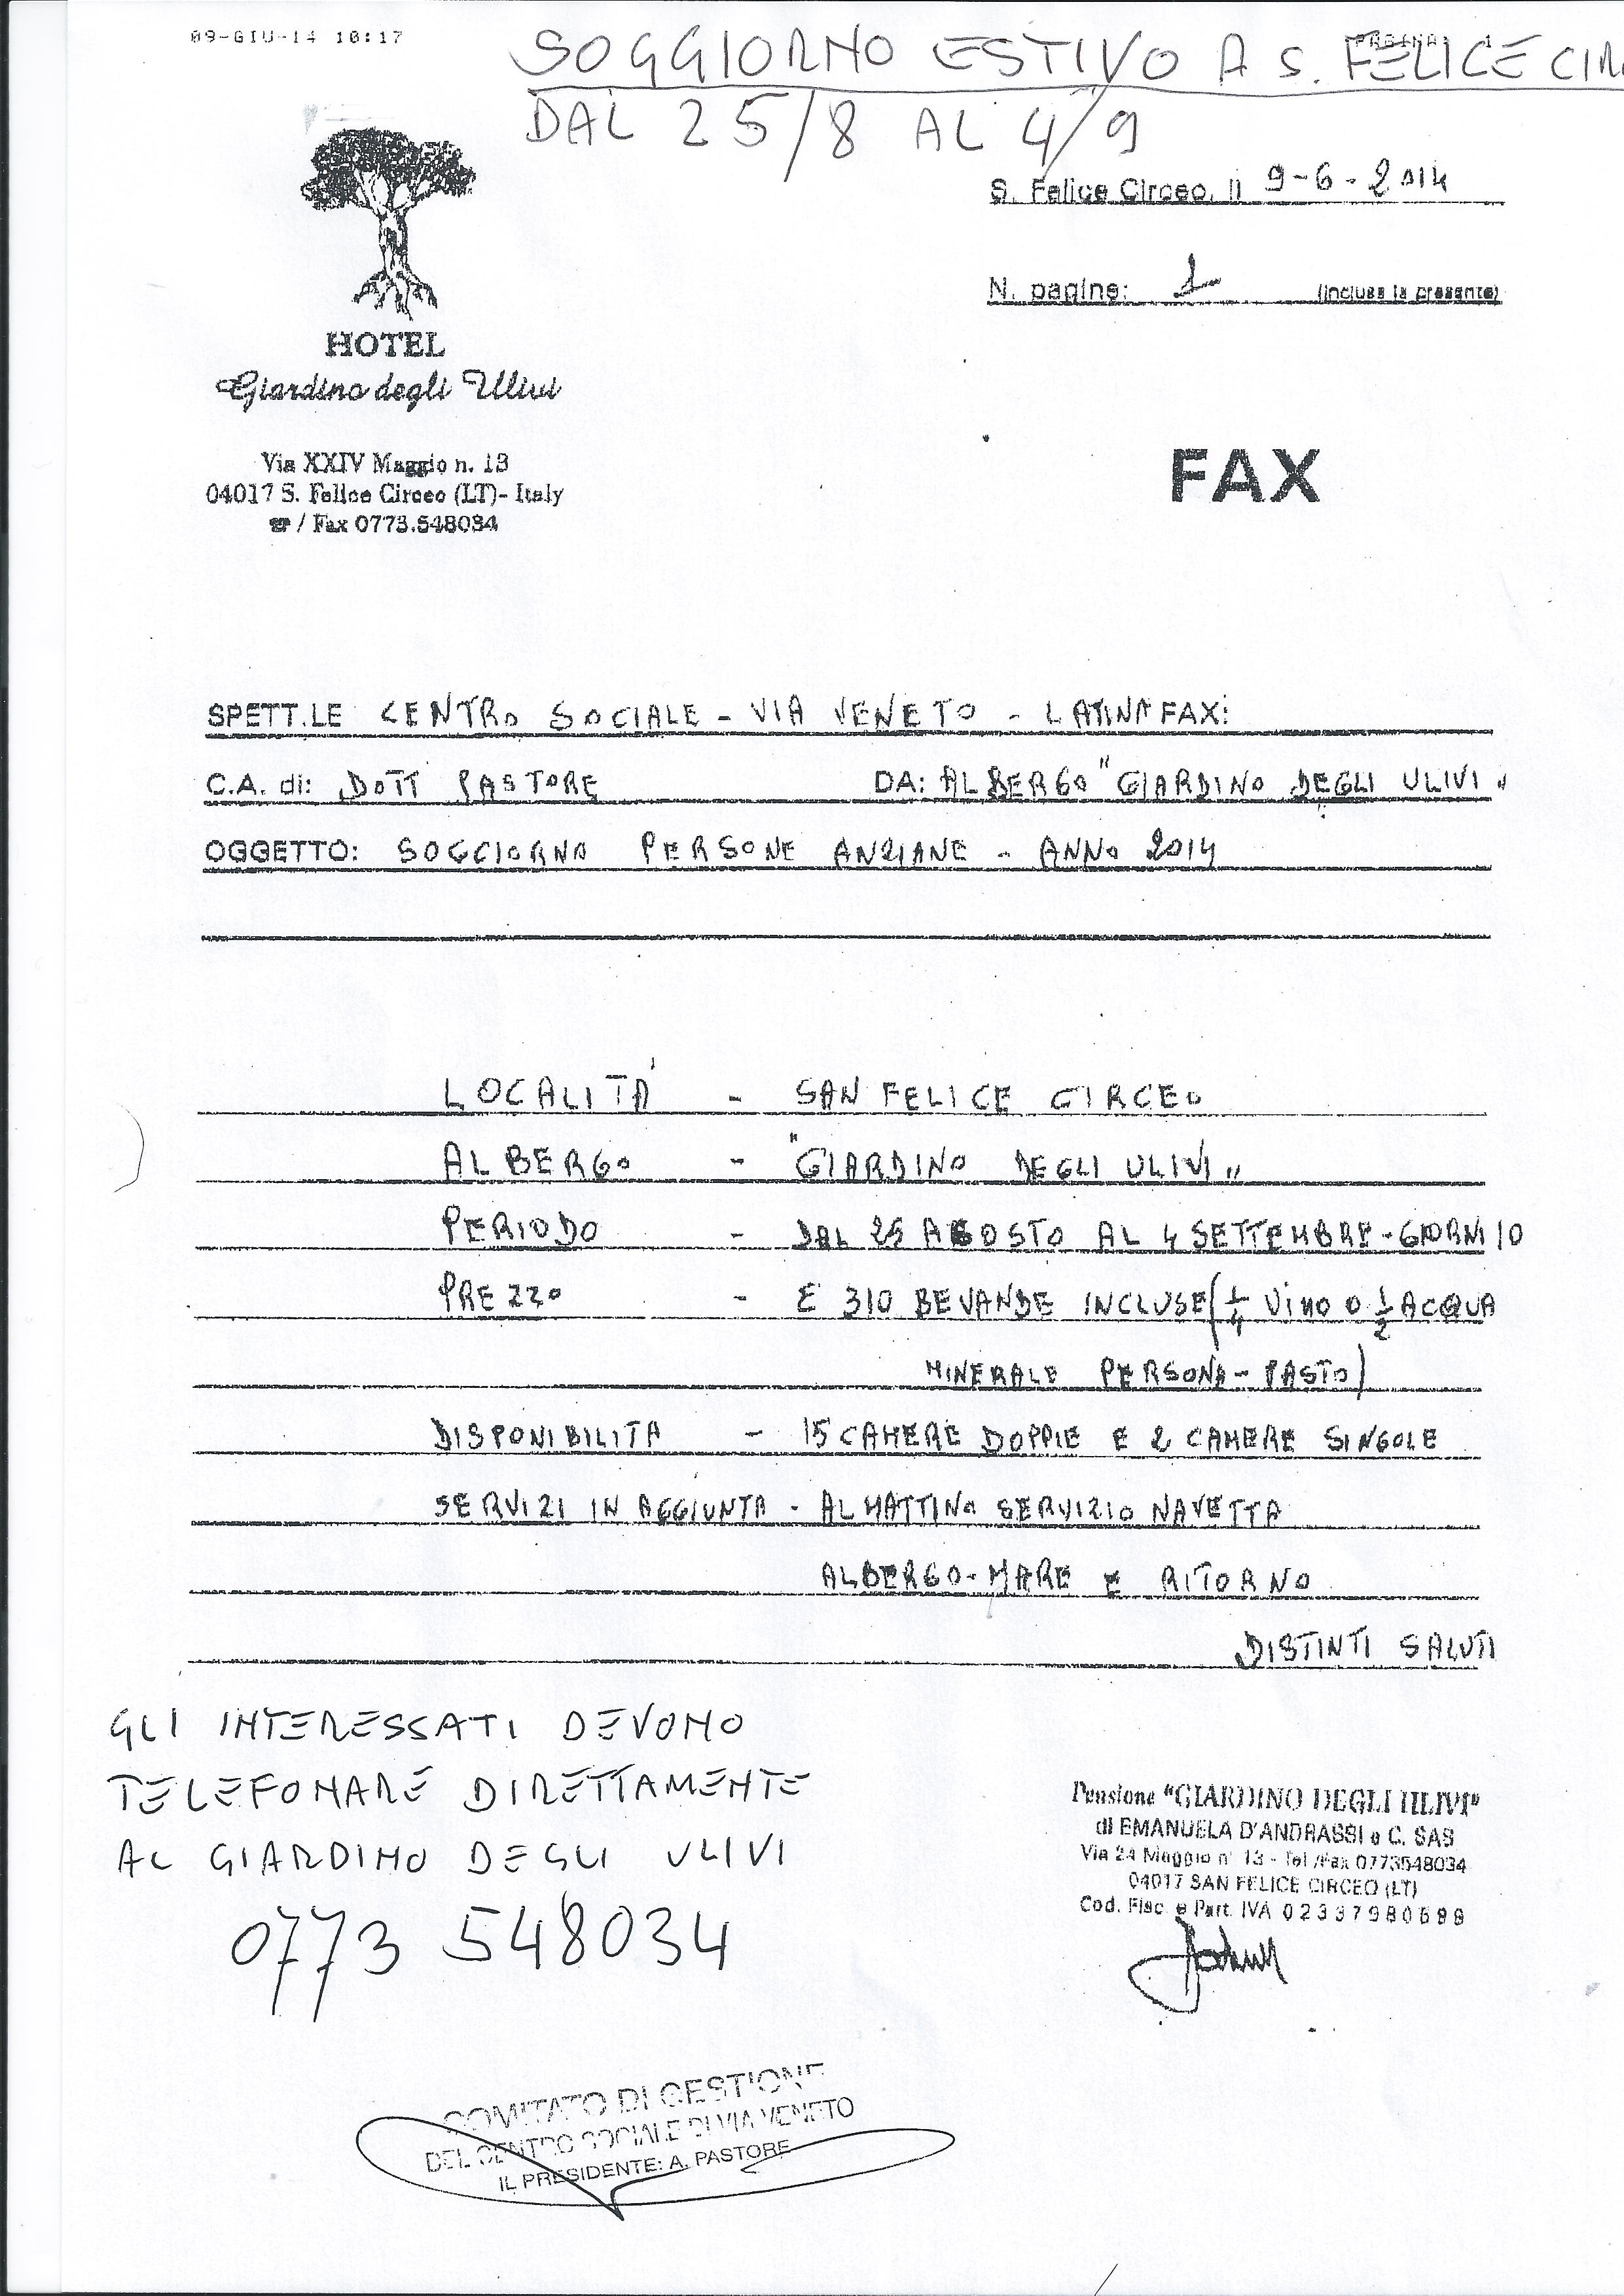 09-GIU-14 10:17
SOGGIORNO ESTIVO A S. FELICE CIR
DAL 25/8 AL 4/9
S. Felice Circeo, li 9-6-2014
N. pagine: 1 (inclusa la presente)
HOTEL
Giardino degli Ulivi
Via XXIV Maggio n. 13
04017 S. Felice Circeo (LT)- Italy
☎ / Fax 0773.548034
FAX
SPETT.LE CENTRO SOCIALE - VIA VENETO - LATINA FAX:
C.A. di: DOTT PASTORE DA: ALBERGO "GIARDINO DEGLI ULIVI"
OGGETTO: SOGGIORNO PERSONE ANZIANE - ANNO 2014
LOCALITA' - SAN FELICE CIRCEO
ALBERGO - "GIARDINO DEGLI ULIVI"
PERIODO - DAL 25 AGOSTO AL 4 SETTEMBRE - GIORNI 10
PREZZO - € 310 BEVANDE INCLUSE (1/4 Vino o 1/2 ACQUA
MINERALE PERSONA - PASTO)
DISPONIBILITA - 15 CAMERE DOPPIE E 2 CAMERE SINGOLE
SERVIZI IN AGGIUNTA - AL MATTINO SERVIZIO NAVETTA
ALBERGO - MARE E RITORNO
DISTINTI SALUTI
GLI INTERESSATI DEVONO
TELEFONARE DIRETTAMENTE
AL GIARDINO DEGLI ULIVI
0773 548034
Pensione "GIARDINO DEGLI ULIVI"
di EMANUELA D'ANDRASSI e C. SAS
Via 24 Maggio n° 13 - Tel /Fax 0773548034
04017 SAN FELICE CIRCEO (LT)
Cod. Fisc. e Part. IVA
COMITATO DI GESTIONE
DEL CENTRO SOCIALE DI VIA VENETO
IL PRESIDENTE: A. PASTORE